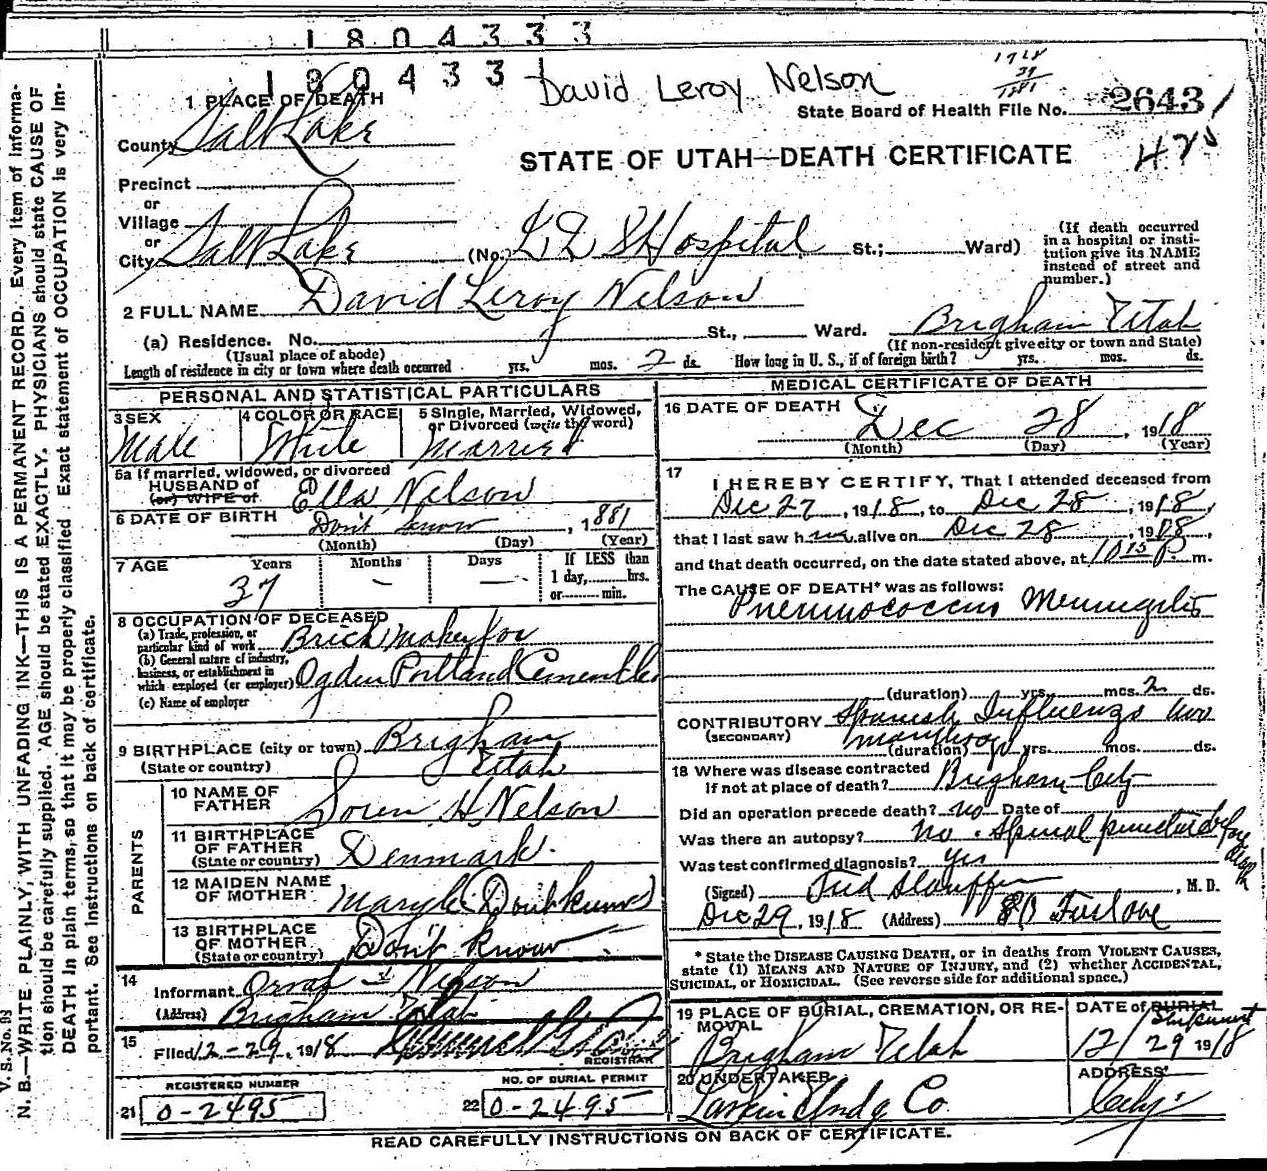 1804333
180433
David Leroy Nelson
1918
37
1881
State Board of Health File No. 2643
STATE OF UTAH—DEATH CERTIFICATE
1 PLACE OF DEATH
County Salt Lake
Precinct
or
Village
or
City Salt Lake (No. L D S Hospital St.; Ward)
(If death occurred in a hospital or insti-
tution give its NAME
instead of street and
number.)
2 FULL NAME David Leroy Nelson
(a) Residence. No. St., Ward. Brigham Utah
(Usual place of abode) (If non-resident give city or town and State)
Length of residence in city or town where death occurred yrs. mos. 2 ds. How long in U. S., if of foreign birth? yrs. mos. ds.
PERSONAL AND STATISTICAL PARTICULARS
3 SEX Male
4 COLOR OR RACE White
5 Single, Married, Widowed, or Divorced (write the word) Married
5a If married, widowed, or divorced
HUSBAND of
(or) WIFE of Ella Nelson
6 DATE OF BIRTH Don't know, 1881
(Month) (Day) (Year)
7 AGE Years Months Days If LESS than
37 — — 1 day, hrs.
or min.
8 OCCUPATION OF DECEASED
(a) Trade, profession, or
particular kind of work Brick maker for
(b) General nature of industry,
business, or establishment in
which employed (or employer) Ogden Portland Cement Co
(c) Name of employer
9 BIRTHPLACE (city or town) Brigham
(State or country) Utah
PARENTS
10 NAME OF FATHER Soren H. Nelson
11 BIRTHPLACE OF FATHER (State or country) Denmark.
12 MAIDEN NAME OF MOTHER Mary
13 BIRTHPLACE OF MOTHER (State or country) Don't Know
14 Informant Nelson
(Address) Brigham Utah
15 Filed 12-29, 1918
REGISTRAR
REGISTERED NUMBER
21 0-2495
NO. OF BURIAL PERMIT
22 0-2495
MEDICAL CERTIFICATE OF DEATH
16 DATE OF DEATH Dec 28, 1918
(Month) (Day) (Year)
17 I HEREBY CERTIFY, That I attended deceased from
Dec 27, 1918, to Dec 28, 1918,
that I last saw h im alive on Dec 28, 1918,
and that death occurred, on the date stated above, at 10 15 P. m.
The CAUSE OF DEATH* was as follows:
Pneumococcus Meningitis
(duration) yrs. mos. 2 ds.
CONTRIBUTORY Spanish Influenza two
(SECONDARY)
(duration) yrs. mos. ds.
18 Where was disease contracted
If not at place of death? Brigham City
Did an operation precede death? no Date of
Was there an autopsy? No. Spinal puncture before death
Was test confirmed diagnosis? Yes
(Signed) Fred Stauffer, M.D.
Dec 29, 1918 (Address)
* State the DISEASE CAUSING DEATH, or in deaths from VIOLENT CAUSES,
state (1) MEANS AND NATURE OF INJURY, and (2) whether ACCIDENTAL,
SUICIDAL, or HOMICIDAL. (See reverse side for additional space.)
19 PLACE OF BURIAL, CREMATION, OR RE-
MOVAL Brigham Utah
DATE of BURIAL
Shipment
12/29 1918
20 UNDERTAKER Larkin Undg Co
ADDRESS City
READ CAREFULLY INSTRUCTIONS ON BACK OF CERTIFICATE.
V. S. No.
N. B.—WRITE PLAINLY, WITH UNFADING INK—THIS IS A PERMANENT RECORD. Every item of informa-
tion should be carefully supplied. AGE should be stated EXACTLY. PHYSICIANS should state CAUSE OF
DEATH in plain terms, so that it may be properly classified. Exact statement of OCCUPATION is very im-
portant. See instructions on back of certificate.